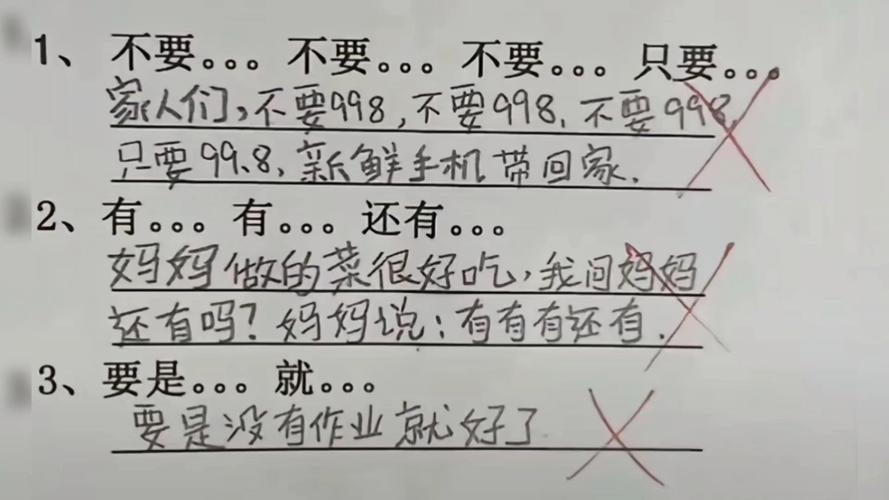 1、不要。。。不要。。。不要。。。只要。。。
家人们,不要998,不要998,不要998,
只要99.8,新鲜手机带回家.
2、有。。。有。。。还有。。。
妈妈做的菜很好吃,我问妈妈
还有吗?妈妈说:有有有还有.
3、要是。。。就。。。
要是没有作业就好了